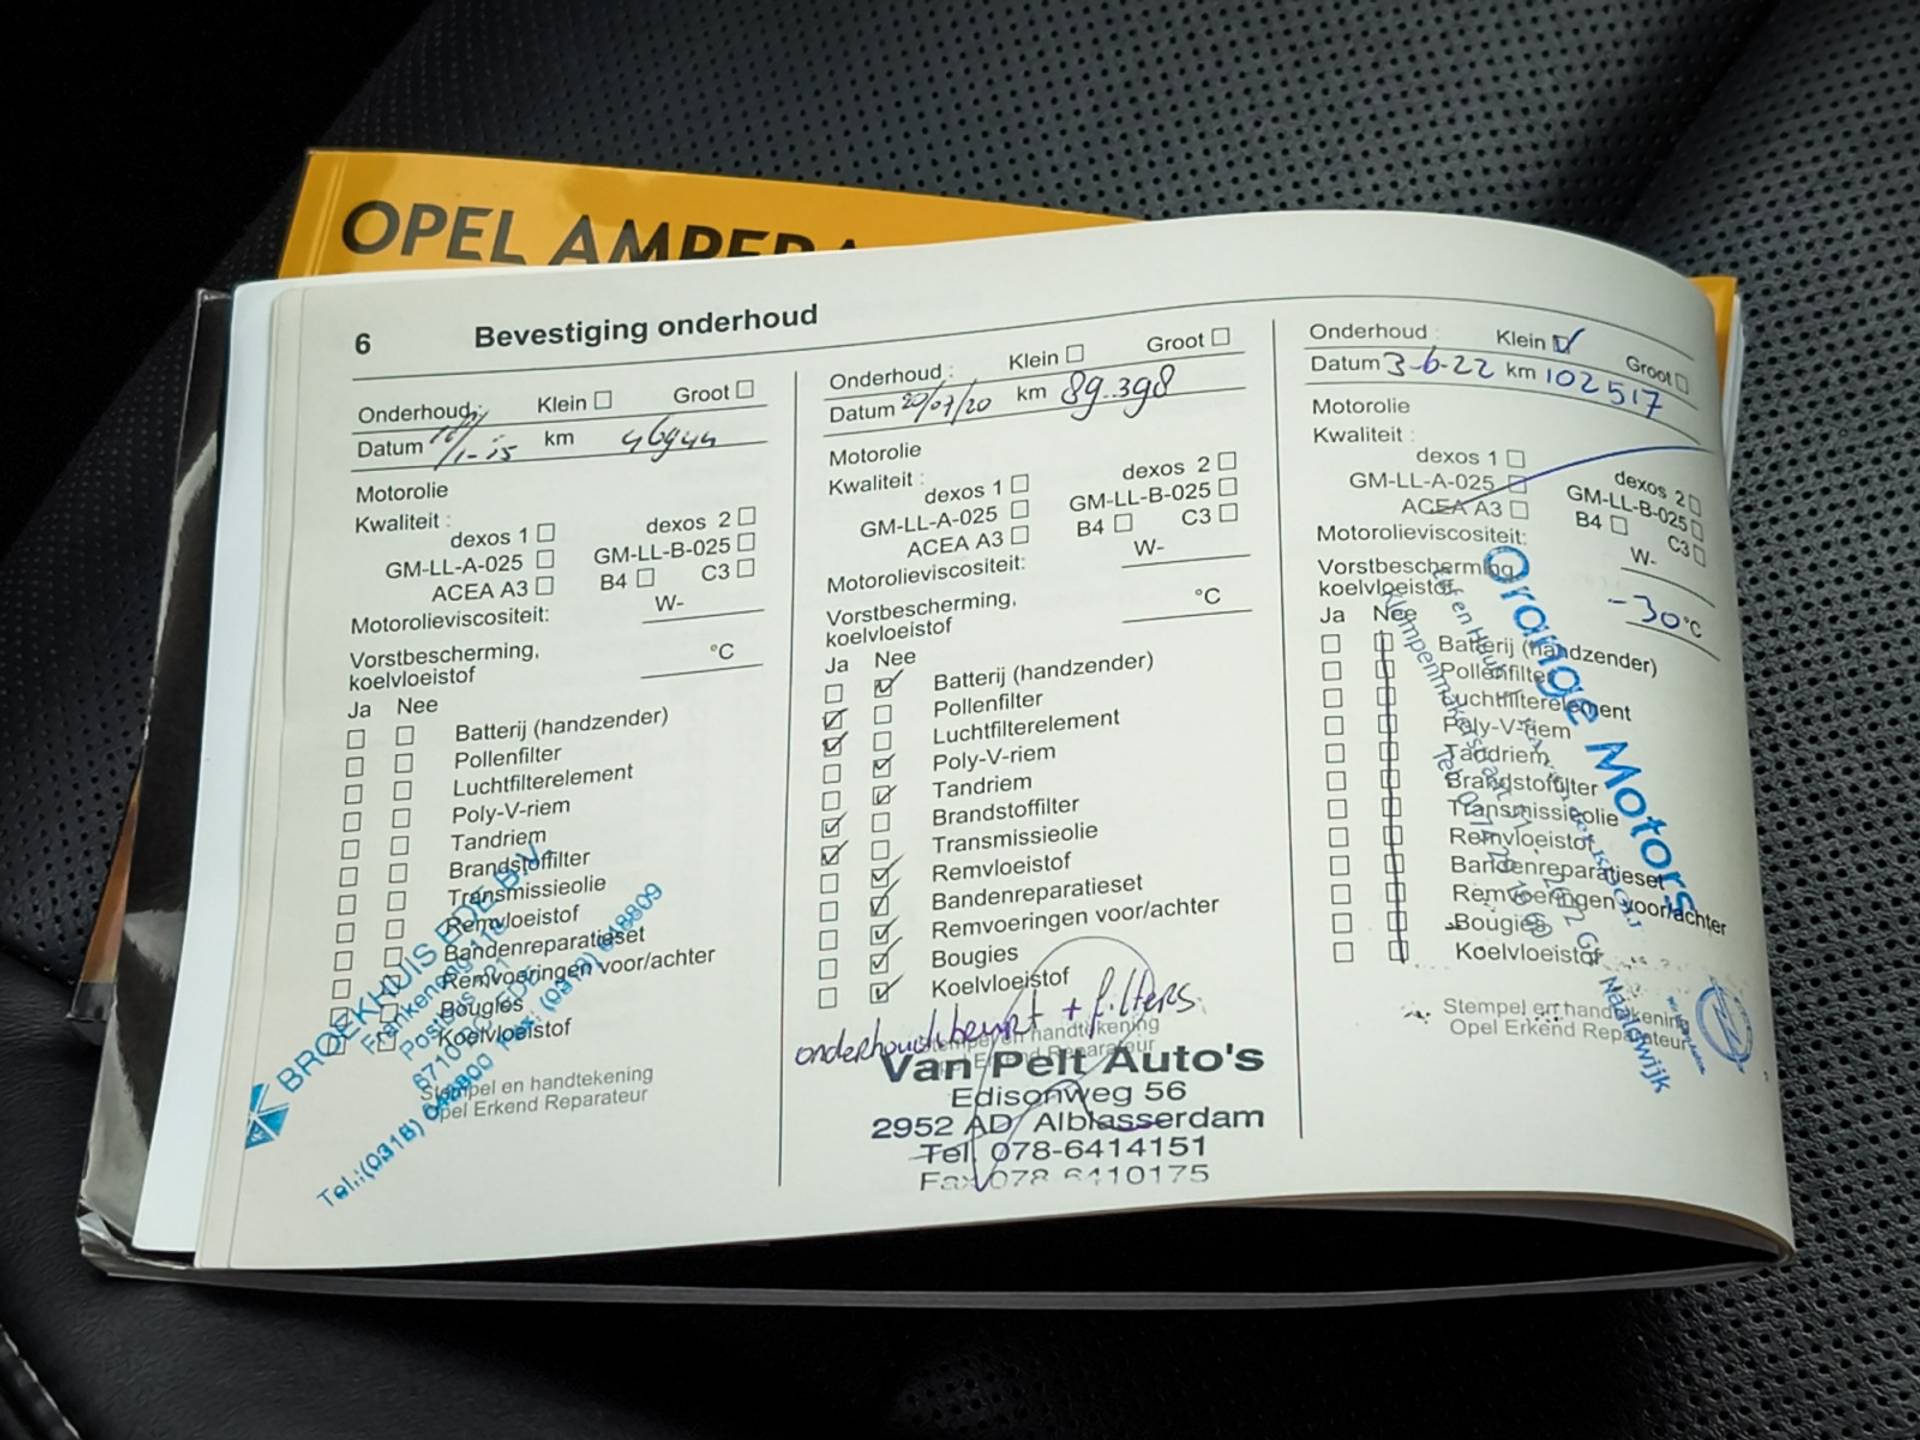 OPEL AMPERA
6 Bevestiging onderhoud
Onderhoud: Klein Groot
Datum 1-15 km 46944
Motorolie
Kwaliteit :
dexos 1 dexos 2
GM-LL-A-025 GM-LL-B-025
ACEA A3 B4 C3
Motorolieviscositeit: W-
Vorstbescherming,
koelvloeistof °C
Ja Nee
Batterij (handzender)
Pollenfilter
Luchtfilterelement
Poly-V-riem
Tandriem
Brandstoffilter
Transmissieolie
Remvloeistof
Bandenreparatieset
Remvoeringen voor/achter
Bougies
Koelvloeistof
Stempel en handtekening
Opel Erkend Reparateur
BROEKHUIS EDE B.V.
Frankeneng
Postbus
6710 EDE
Tel.:(0318) Fax: (0318) 648809
Onderhoud : Klein Groot
Datum 20/07/20 km 89.398
Motorolie
Kwaliteit :
dexos 1 dexos 2
GM-LL-A-025 GM-LL-B-025
ACEA A3 B4 C3
Motorolieviscositeit: W-
Vorstbescherming,
koelvloeistof °C
Ja Nee
Batterij (handzender)
Pollenfilter
Luchtfilterelement
Poly-V-riem
Tandriem
Brandstoffilter
Transmissieolie
Remvloeistof
Bandenreparatieset
Remvoeringen voor/achter
Bougies
Koelvloeistof
onderhoudsbeurt + filters.
Stempel en handtekening
Opel Erkend Reparateur
Van Pelt Auto's
Edisonweg 56
2952 AD Alblasserdam
Tel. 078-6414151
Fax 078 6410175
Onderhoud : Klein Groot
Datum 3-6-22 km 102517
Motorolie
Kwaliteit :
dexos 1 dexos 2
GM-LL-A-025 GM-LL-B-025
ACEA A3 B4 C3
Motorolieviscositeit: W-
Vorstbescherming,
koelvloeistof -30 °C
Ja Nee
Batterij (handzender)
Pollenfilter
Luchtfilterelement
Poly-V-riem
Tandriem
Brandstoffilter
Transmissieolie
Remvloeistof
Bandenreparatieset
Remvoeringen voor/achter
Bougies
Koelvloeistof
Stempel en handtekening
Opel Erkend Reparateur
Orange Motors
Naaldwijk